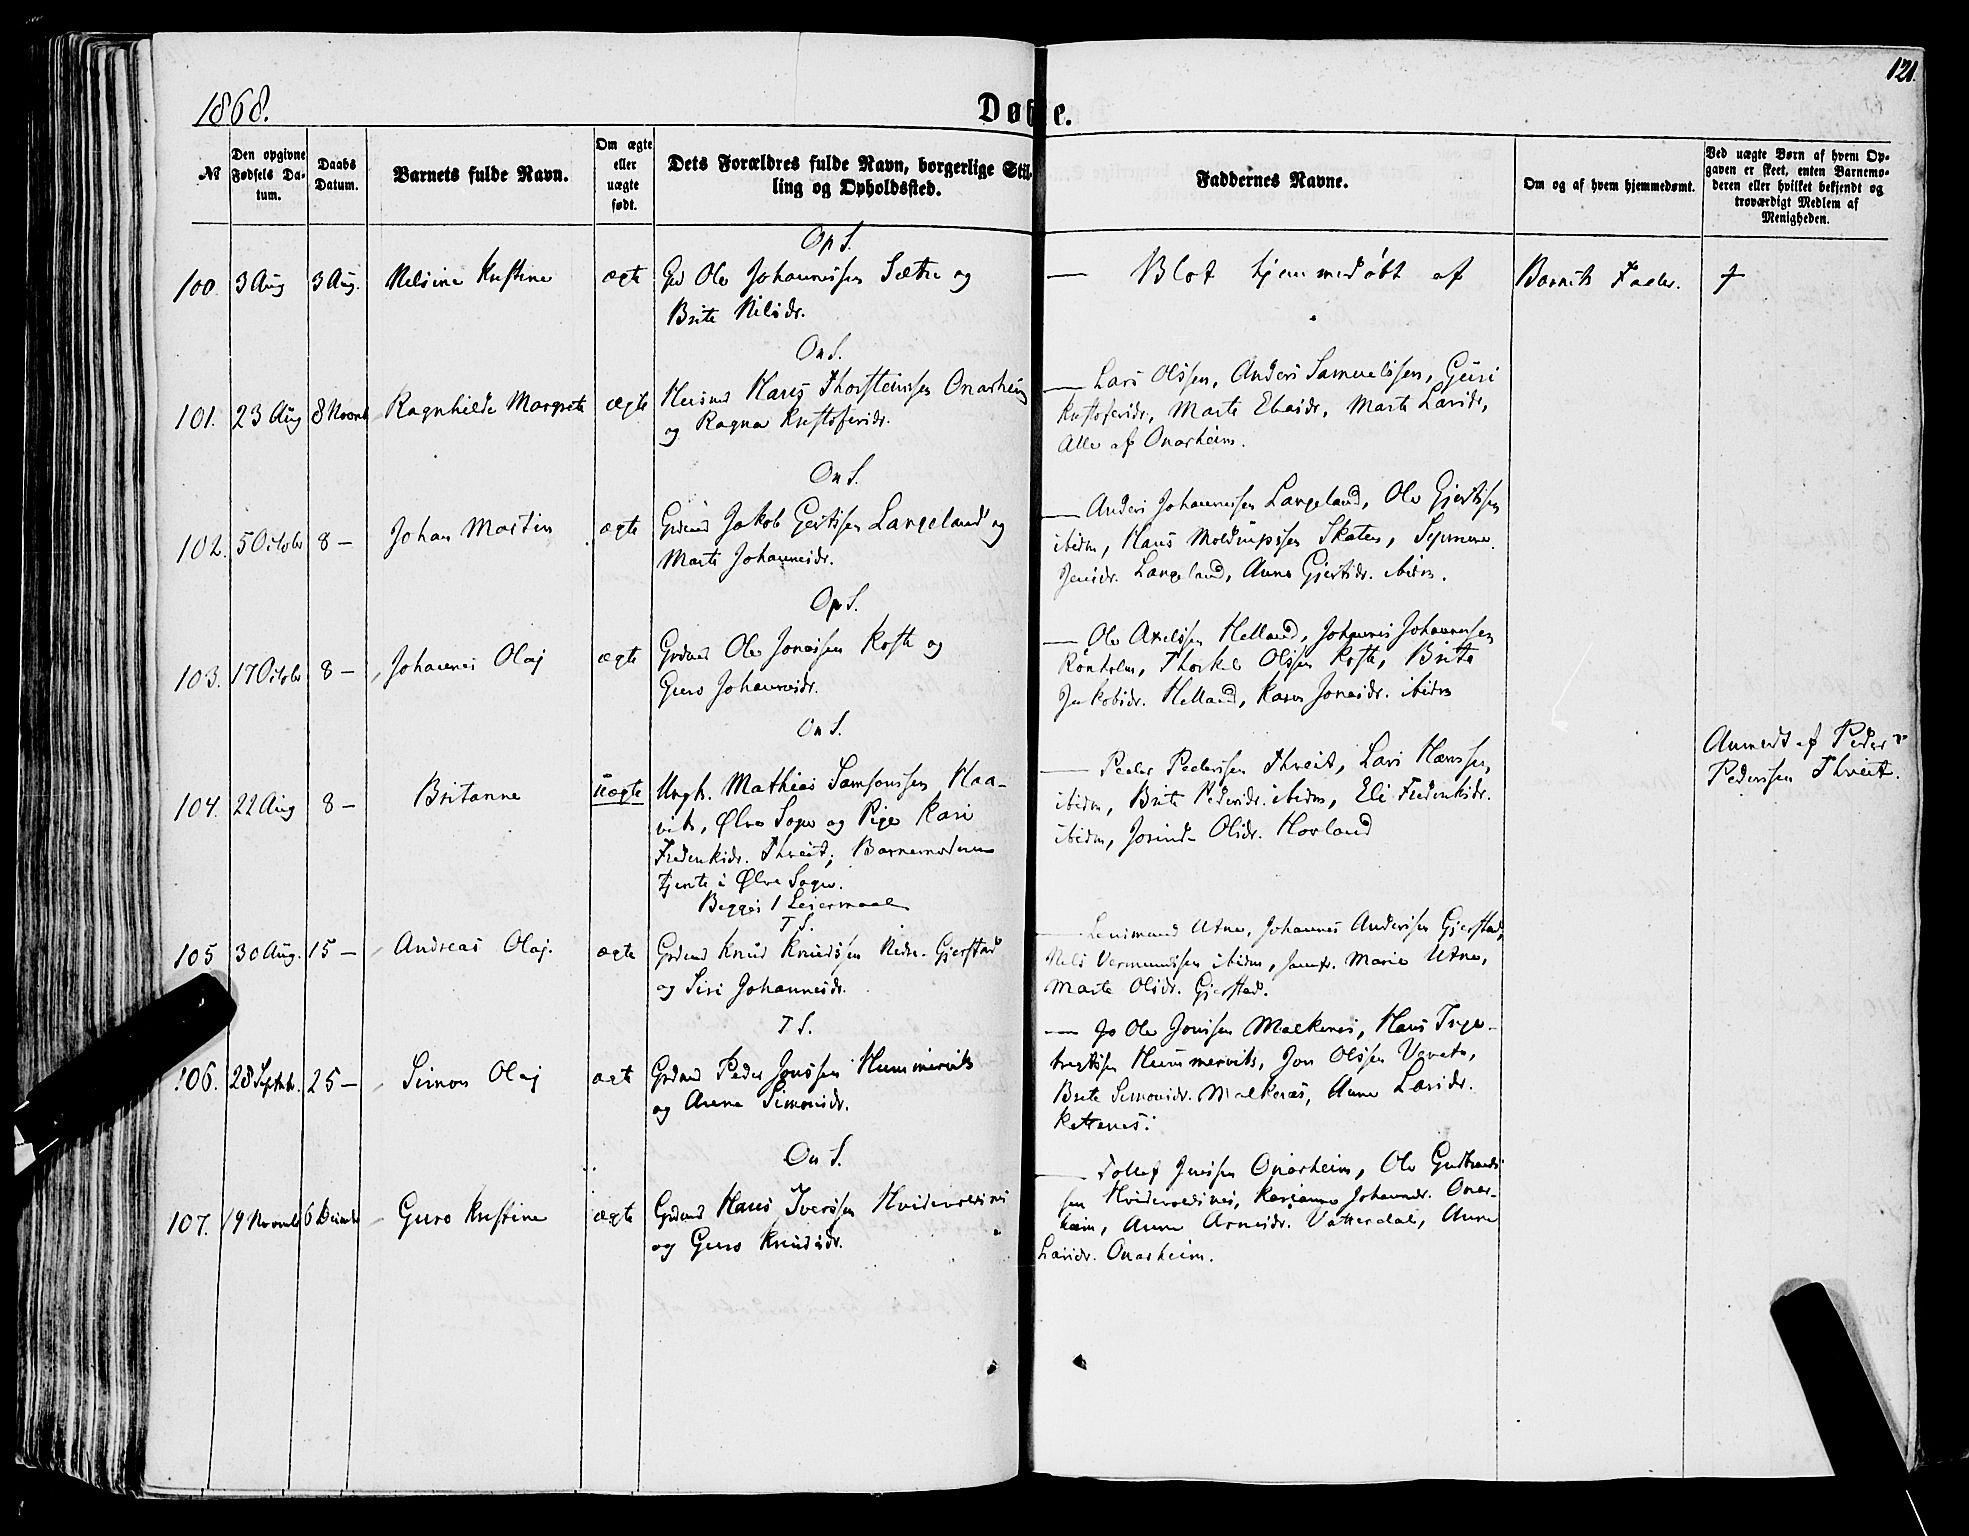 121.
1868.
Døbte.
№
Den opgivne Fødsels Datum.
Daabs Datum.
Barnets fulde Navn.
Om ægte eller uægte født.
Dets Forældres fulde Navn, borgerlige Stilling og Opholdssted.
Faddernes Navne.
Om og af hvem hjemmedømt.
Ved uægte Børn af hvem Opgaven er skeet, enten Barnemoderen eller hvilket bekjendt og troværdigt Medlem af Menigheden.
Op S.
100. 3 Aug 3 Aug. Nelsine Kristine ægte Gd Ole Johannessen Sætre og
Brite Nilsdr.
— Blot hjemmedøbt af Barnets Fader. †
On S.
101. 23 Aug 8 Novmb Ragnhilde Margrete ægte Huusmd Hans Thorsteinssen Onarheim
og Ragna Kristofersdr.
— Lars Olssen, Anders Samuelssen, Guri
Kristofersdr, Marte Eliasdr, Marte Larsdr,
Alle af Onarheim.
On S.
102. 5 Octobr 8 — Johan Martin ægte Grdmd Jakob Gertssen Langeland og
Marte Johannesdr.
— Anders Johannessen Langeland, Ole Gjertssen
ibidm, Hans Moldrupssen Skaten,
Jensdr. Langeland, Anna Gjertsdr. ibidm.
Op S.
103. 17 Octobr 8 — Johannes Olaj ægte Grdmd Ole Jonassen Koste og
Guro Johannesdr.
— Ole Axelssen Helland, Johannes Johannessen
Rönholm, Thorkel Olssen Koste, Brite
Jakobsdr. Helland, Karen Jonasdr. ibidm
On S.
104. 22 Aug 8 — Britanne uægte Ungk. Mathias Samsonssen Haa-
vik, Ølve Sogn og Pige Kari
Frederiksdr. Thveit; Barnemoderen
tjente i Ølve Sogn.
Begges 1 Leiermaal
— Peder Pederssen Thveit, Lars Hanssen
ibidm, Brite Pedersdr. ibidm, Eli Frederiksdr.
ibidm, Jorind Olsdr. Hovland
Anmeldt af Peder
Pederssen Thveit.
T S.
105 30 Aug. 15 — Andreas Olaj. ægte Grdmd Knud Knudssen Nedre Gjerstad
og Siri Johannesdr.
— Lensmand Utne, Johannes Anderssen Gjerstad,
Nils Vermundssen ibidm, Jomfr. Marie Utne,
Marte Olsdr. Gjerstad.
T S.
106. 28 Septmb. 25 — Simon Olaj ægte Grdmd Peder Jonssen Hummervik
og Anna Simonsdr.
— Ole Jonssen Malkenes, Hans Inge-
bregtssen Hummervik, Jon Olssen
Brite Simonsdr. Malkenes, Anna Larsdr.
On S.
107. 19 Novmb 6 Decmb Guro Kristine ægte Grdmd Hans Iverssen
og Guro Knudsdr.
— Tollef Jenssen Onarheim, Ole Gudbrands-
sen Johannesdr. Onar-
heim, Anna Arnesdr. Vatterdal, Anna
Larsdr. Onarheim.